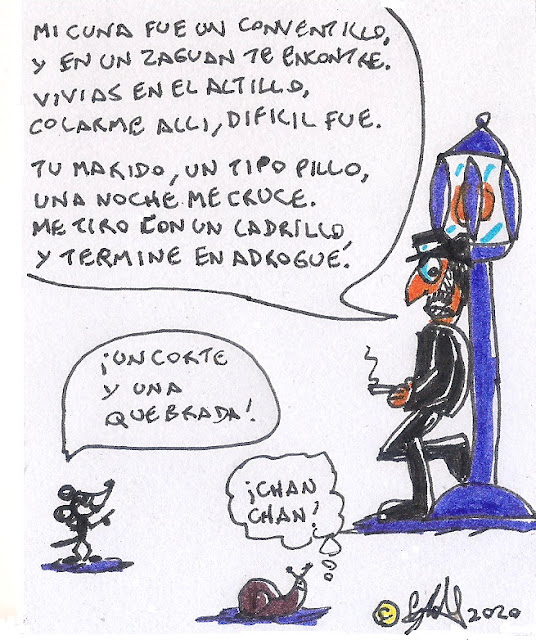 MI CUNA FUE UN CONVENTILLO,
Y EN UN ZAGUAN TE ENCONTRE.
VIVIAS EN EL ALTILLO,
COLARME ALLI, DIFICIL FUE.
TU MARIDO, UN TIPO PILLO,
UNA NOCHE ME CRUCE.
ME TIRO CON UN LADRILLO,
Y TERMINE EN ADROGUÉ.
¡UN CORTE
Y UNA
QUEBRADA!
¡CHAN
CHAN!
© 2020